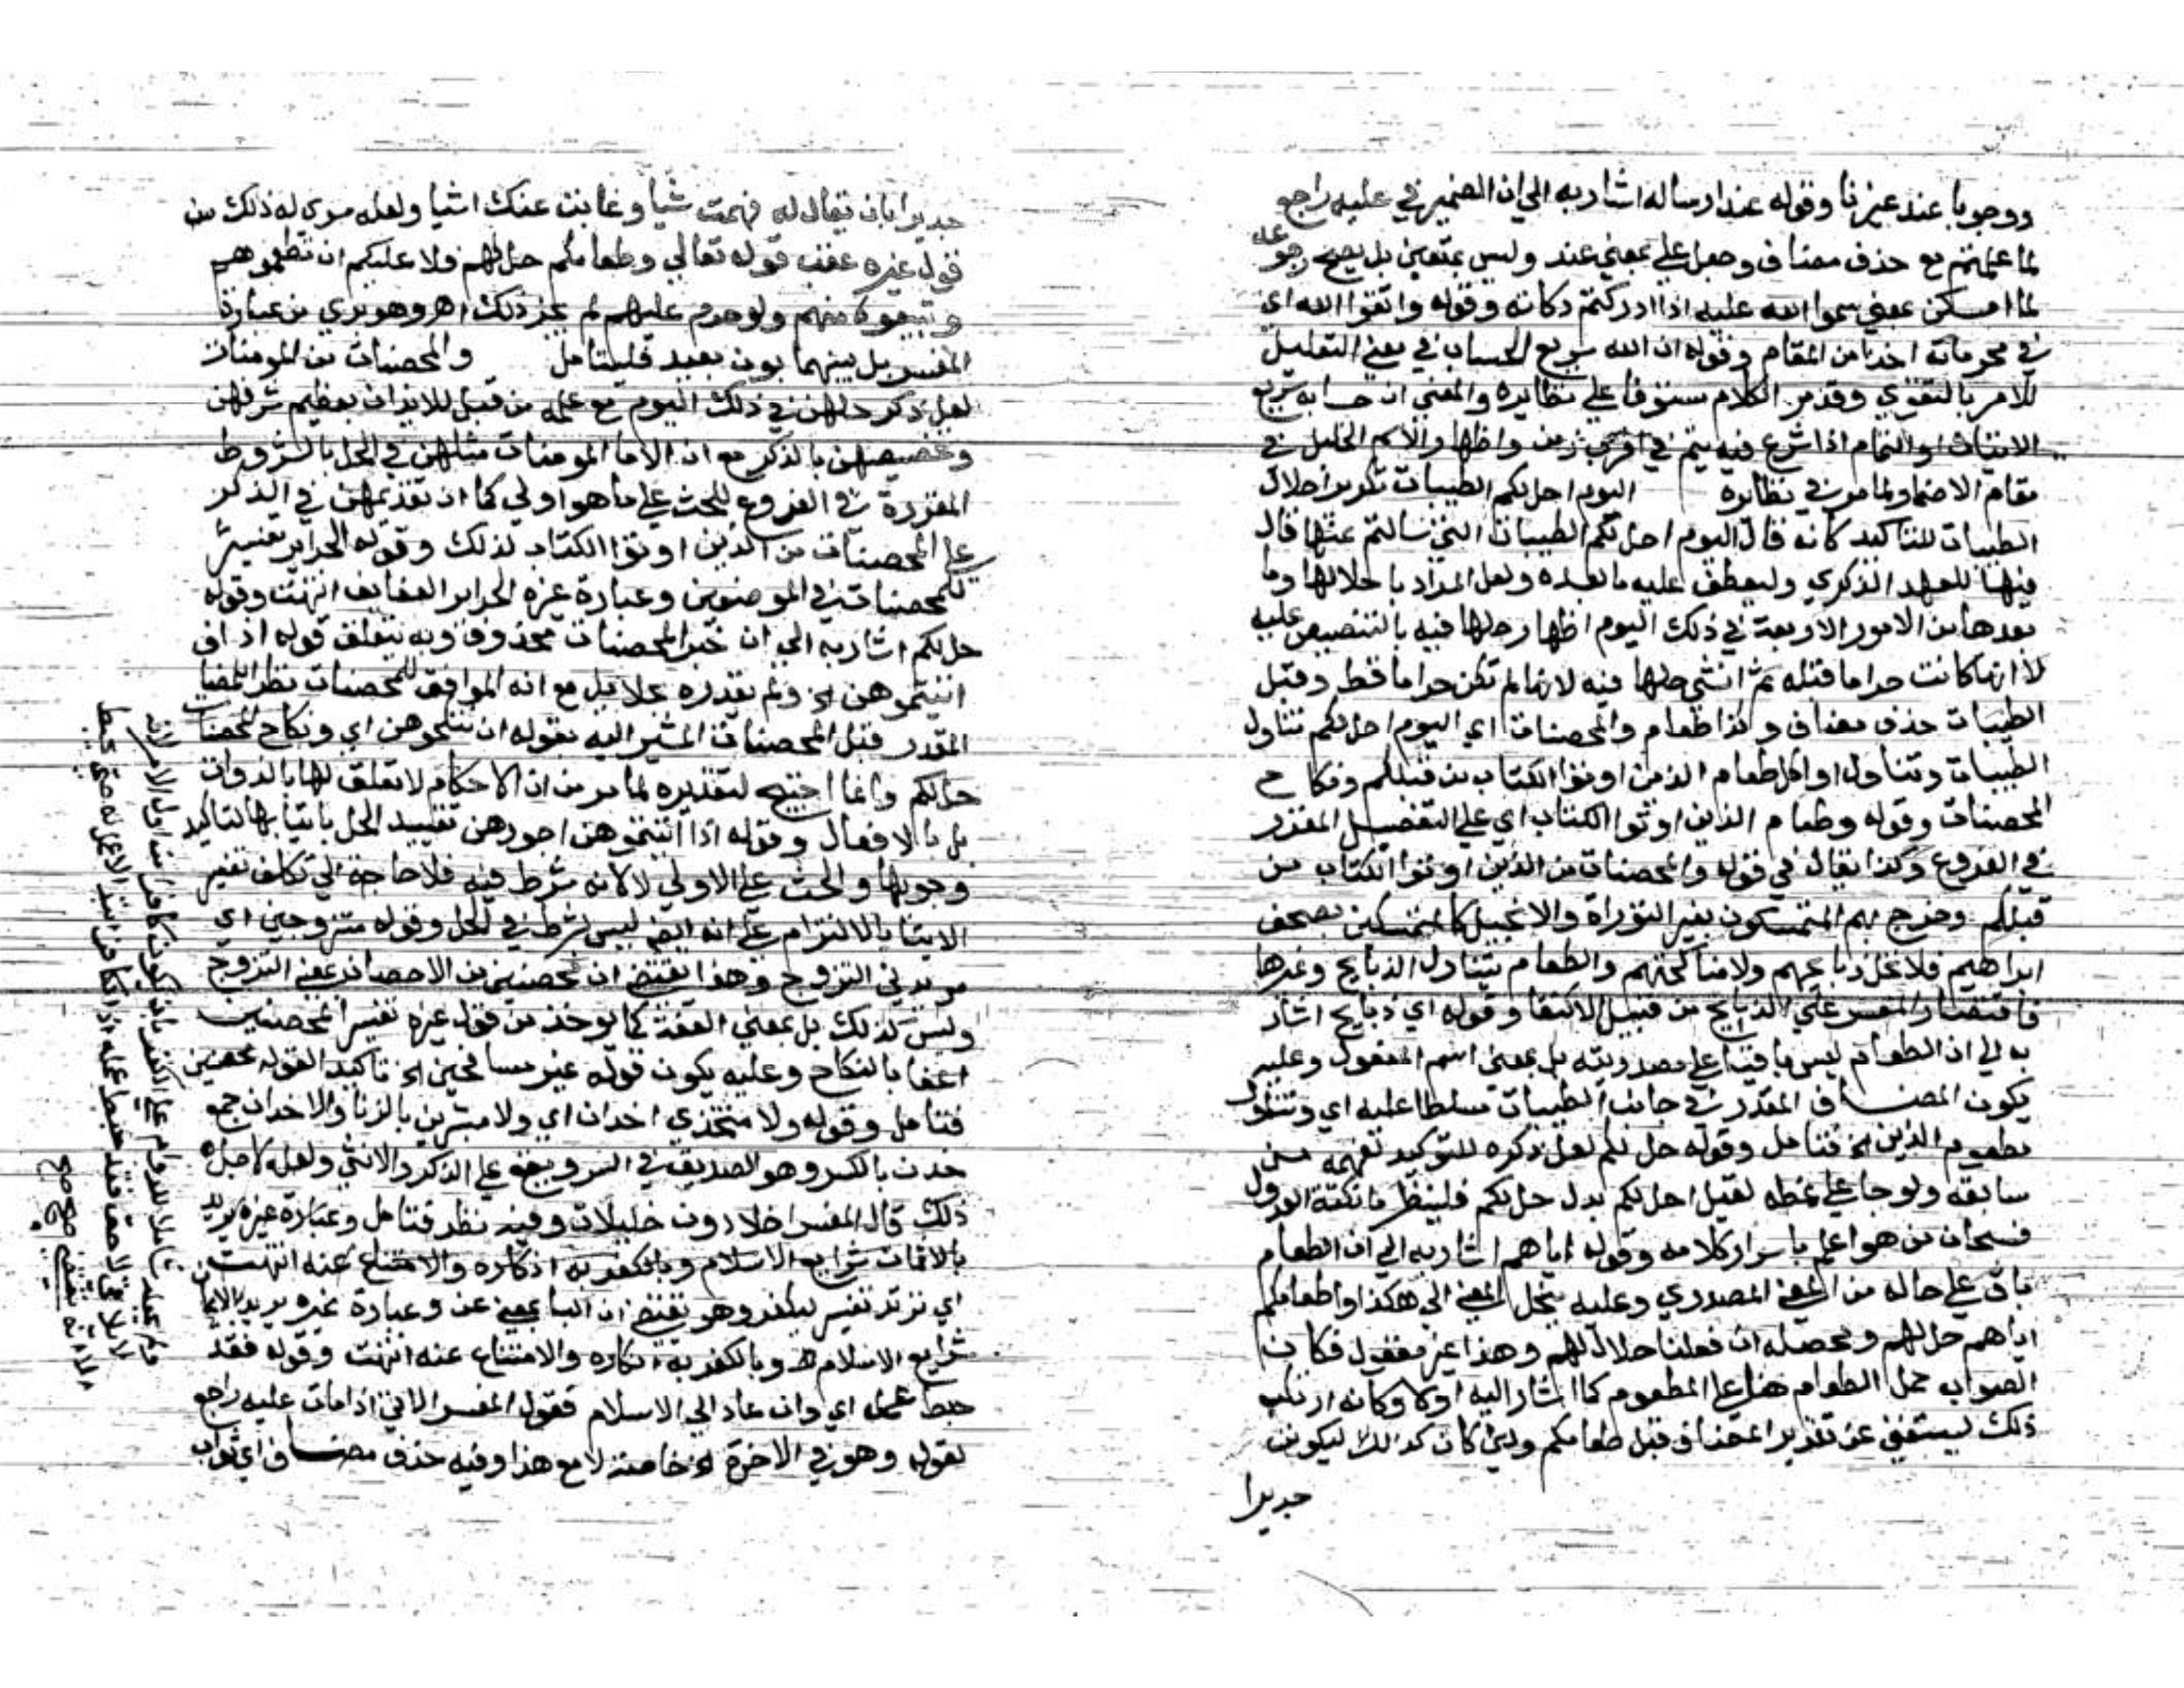 ووجوبا عند غيرنا وقوله عند ارساله اشار به الي ان الضمير في عليه راجع
لما علمتم مع حذف مضاف وجعل علي بمعني عند وليس بمتعين بل يصح رجوعه
لما امسكن بمعني سموا الله عليه اذا ادركتم ذكاته وقوله واتقوا الله اي
في محرماته اخذا من المقام وقوله ان الله سريع الحساب في معني التعليل
للامر بالتقوي وقد مر الكلام مستوفا علي نظايره والمعني ان حسابه سريع
الاتيان او التمام اذا شرع فيه يتم في اقرب زمن واظهار الاسم الجليل في
مقام الاضمار لما مر في نظايره اليوم احل لكم الطيبات تكرير احلال
الطيبات للتاكيد كانه قال اليوم احل لكم الطيبات التي سالتم عنها فال
فيها للعهد الذكري وليعطف عليه ما بعده ولعل المراد باحلالها وما
بعدها من الامور الاربعة في ذلك اليوم اظهار حلها فيه بالتنصيص عليه
لا انها كانت حراما قبله ثم انشي حلها فيه لانها لم تكن حراما قط وقبل
الطيبات حذف مضاف وكذا طعام والمحصنات اي اليوم احل لكم تناول
الطيبات وتناول او اكل طعام الذين اوتوا الكتاب من قبلكم ونكاح
المحصنات وقوله وطعام الذين اوتوا الكتاب اي علي التفصيل المقرر
في الفروع وكذا يقال في قوله والمحصنات من الذين اوتوا الكتاب من
قبلكم وخرج بهم المتمسكون بغير التوراة والانجيل كالمتمسكين بصحف
ابراهيم فلا تحل ذبايحهم ولا مناكحتهم والطعام يتناول الذبايح وغيرها
فاقتصار المفسر علي الذبايح من قبيل الاكتفا وقوله اي ذبايح اشار
به الي ان الطعام ليس باقيا علي مصدريته بل بمعني اسم المفعول وعليه
يكون المضاف المقدر في جانب الطيبات مسلطا عليه اي وتناول
مطعوم الذين الخ فتامل وقوله حل لكم لعل ذكره للتوكيد لفهمه من
سابقه ولو جا علي نمطه لقيل احل لكم بدل حل لكم فلينظر ما نكتة العدول
فسبحان من هو اعلم باسرار كلامه وقوله اياهم اشار به الي ان الطعام
باق علي حاله من المعني المصدري وعليه ينحل المعني الي هكذا واطعامكم
اياهم حل لهم ومحصله ان فعلنا حلال لهم وهذا غير معقول فكان
الصواب حمل الطعام هنا علي المطعوم كما اشار اليه اولا وكانه ارتكب
ذلك ليستغني عن تقدير المضاف قبل طعامكم ولين كان كذلك ليكونن
جديرا
جديرا بان يقال له فهمت شيا وغابت عنك اشيا ولعله سري له ذلك من
قول غيره عقب قوله تعالي وطعامكم حل لهم فلا عليكم ان تطعموهم
وتبيعوه منهم ولو حرم عليهم لم يجز ذلك اهـ وهو بري من عبارة
المفسر بل بينهما بون بعيد فليتامل والمحصنات من المومنات
لعل ذكر حلهن في ذلك اليوم مع علمه من قبل للايذان بعظيم شرفهن
وتخصيصهن بالذكر مع ان الاما المومنات مثلهن في الحل بالشروط
المقررة في الفروع للحث علي ما هو اولي كما ان تقديمهن في الذكر
علي المحصنات من الذين اوتوا الكتاب لذلك وقوله الحراير تفسير
للمحصنات في الموضعين وعبارة غيره الحراير العفايف انتهت وقوله
حل لكم اشار به الي ان خبر المحصنات محذوف وبه يتعلق قوله اذا
اتيتموهن الخ ولم يقدره حلايل مع انه الموافق للمحصنات نظرا للمضاف
المقدر قبل المحصنات المشير اليه بقوله ان تنكحوهن اي ونكاح المحصنات
حل لكم وانما احتيج لتقديره لما مر من ان الاحكام لا تعلق لها بالذوات
بل بالافعال وقوله اذا اتيتموهن اجورهن تقييد الحل بايتايها لتاكيد
وجوبها والحث علي الاولي لا لانه شرط فيه فلا حاجة الي تكلف تفسير
الايتا بالالتزام علي انه ايضا ليس بشرط في الحل وقوله متزوجين اي
مريدي التزوج وهذا يقتضي ان محصنين من الاحصان بمعني التزوج
وليس كذلك بل بمعني العفة كما يوخذ من قول غيره تفسير المحصنين
اعفا بالنكاح وعليه يكون قوله غير مسافحين الخ تاكيد القوله محصنين
فتامل وقوله ولا متخذي اخدان اي ولا مسرين بالزنا والاخدان جمع
خدن بالكسر وهو الصديق في السر ويقع علي الذكر والانثي ولعله لاجل
ذلك قال المفسر اخلا دون خليلات وفيه نظر فتامل وعبارة غيره يريد
بالايمان شرايع الاسلام وبالكفر به انكاره والامتناع عنه انتهت
اي يرتد تفسير ليكفر وهو يقتضي ان البا بمعني عن وعبارة غيره يريد بالايمان
شرايع الاسلام وبالكفر به انكاره والامتناع عنه انتهت وقوله فقد
حبط عمله اي وان عاد الي الاسلام فقول المفسر الاتي اذا مات عليه راجع
لقوله وهو في الاخرة الخ خاصة لا مع هذا وفيه حذف مضاف اي ثواب